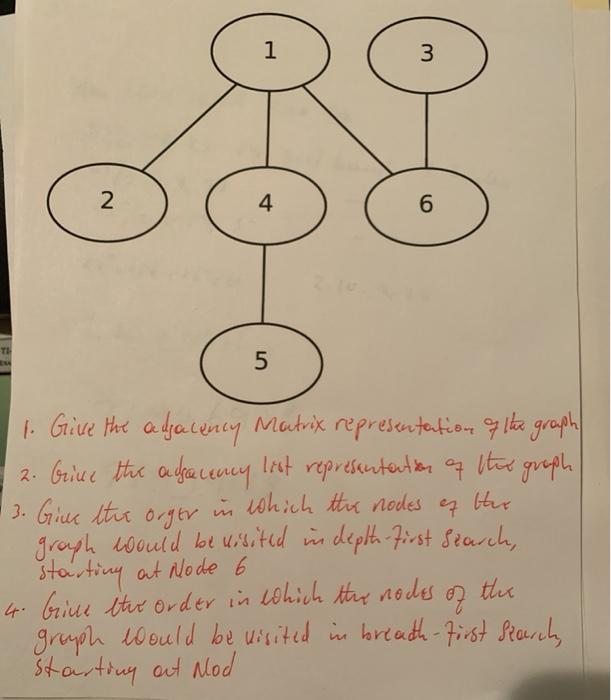 1 3
2 4 6
5
TI-
1. Give the adjacency Matrix representation of the graph
2. Give the adjacency list representation of the graph
3. Give the orger in which the nodes of the
graph would be visited in depth-first search,
starting at Node 6
4. Give the order in which the nodes of the
graph would be visited in breath-first search,
starting at Nod